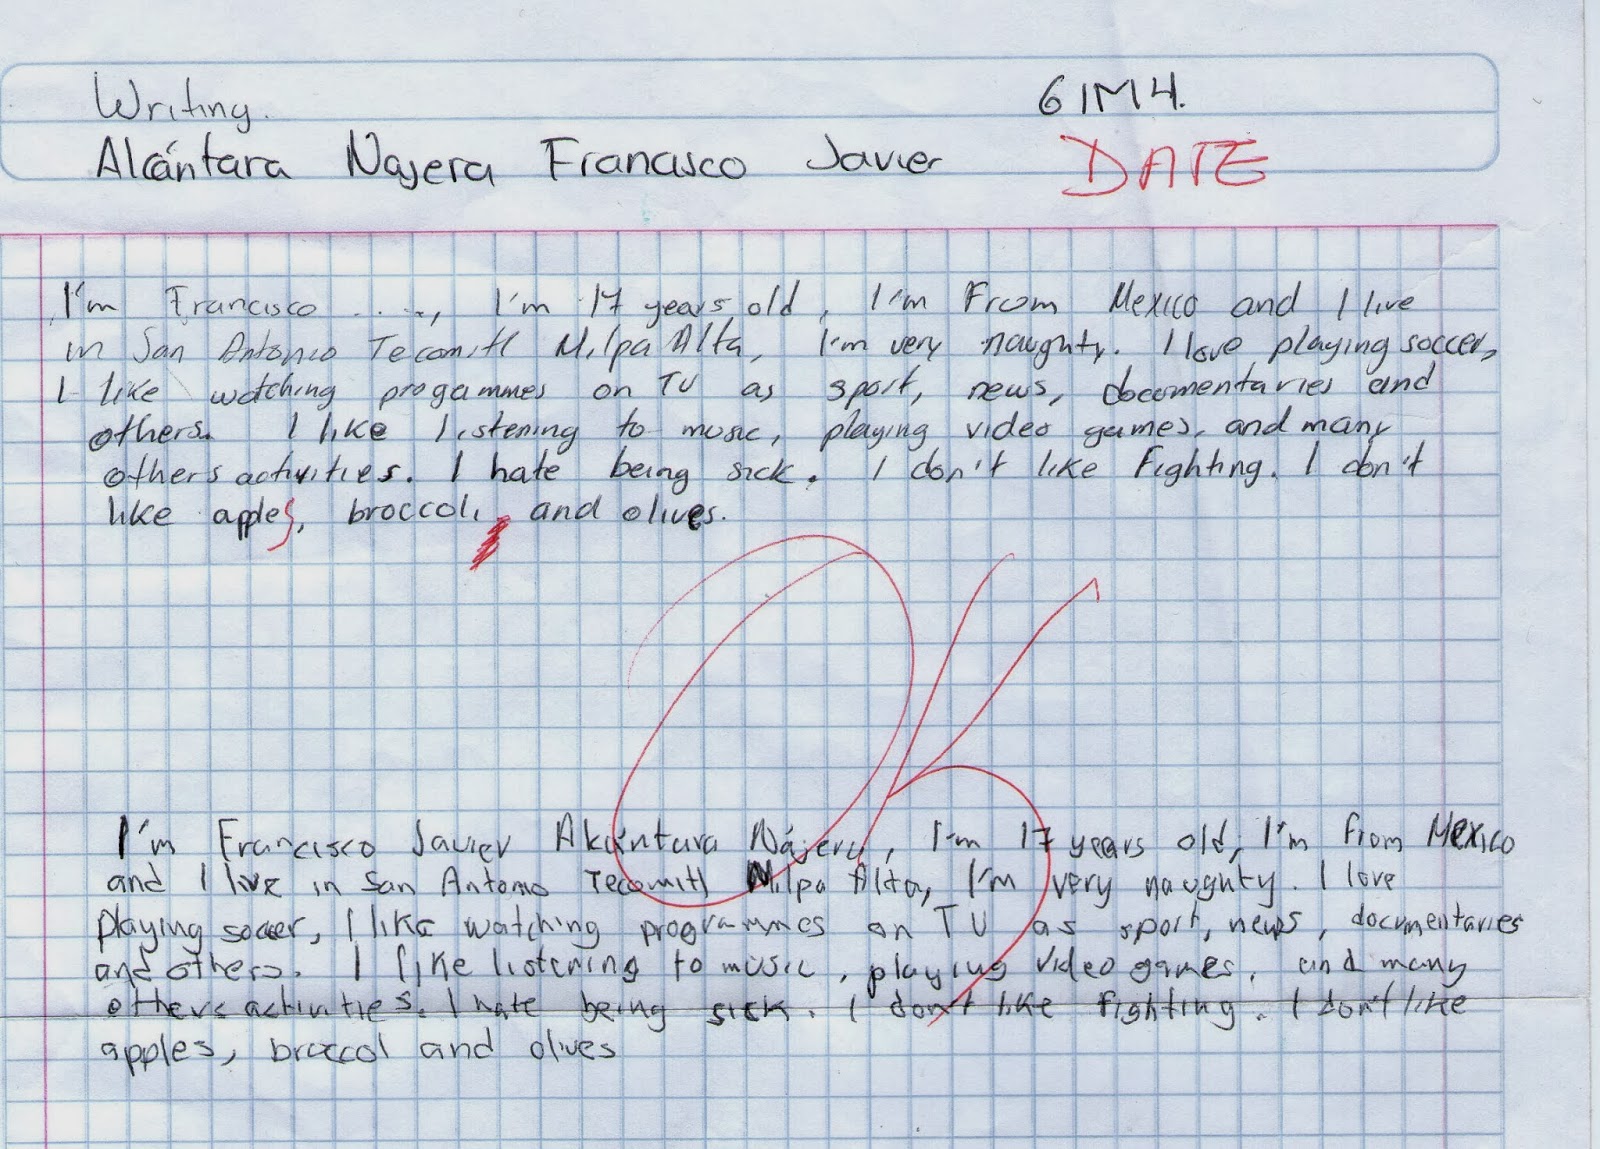 Writing. 61M4.
Alcántara Najera Francisco Javier DATE
I'm Francisco ...., I'm 17 years old, I'm From Mexico and I live
in San Antonio Tecomitl Milpa Alta, I'm very naughty. I love playing soccer,
I like watching progammes on TV as sport, news, docomentaries and
others. I like listening to music, playing video games, and many
others activities. I hate being sick. I don't like fighting. I don't
like apples, broccoli, and olives.
Ok
I'm Francisco Javier Alcántara Nájera, I'm 17 years old, I'm from Mexico
and I live in San Antonio Tecomitl Milpa Alta, I'm very naughty. I love
playing soccer, I like watching programmes on TV as sport, news, documentaries
and others. I like listening to music, playing video games, and many
others activities. I hate being sick. I don't like fighting. I don't like
apples, broccol and olives